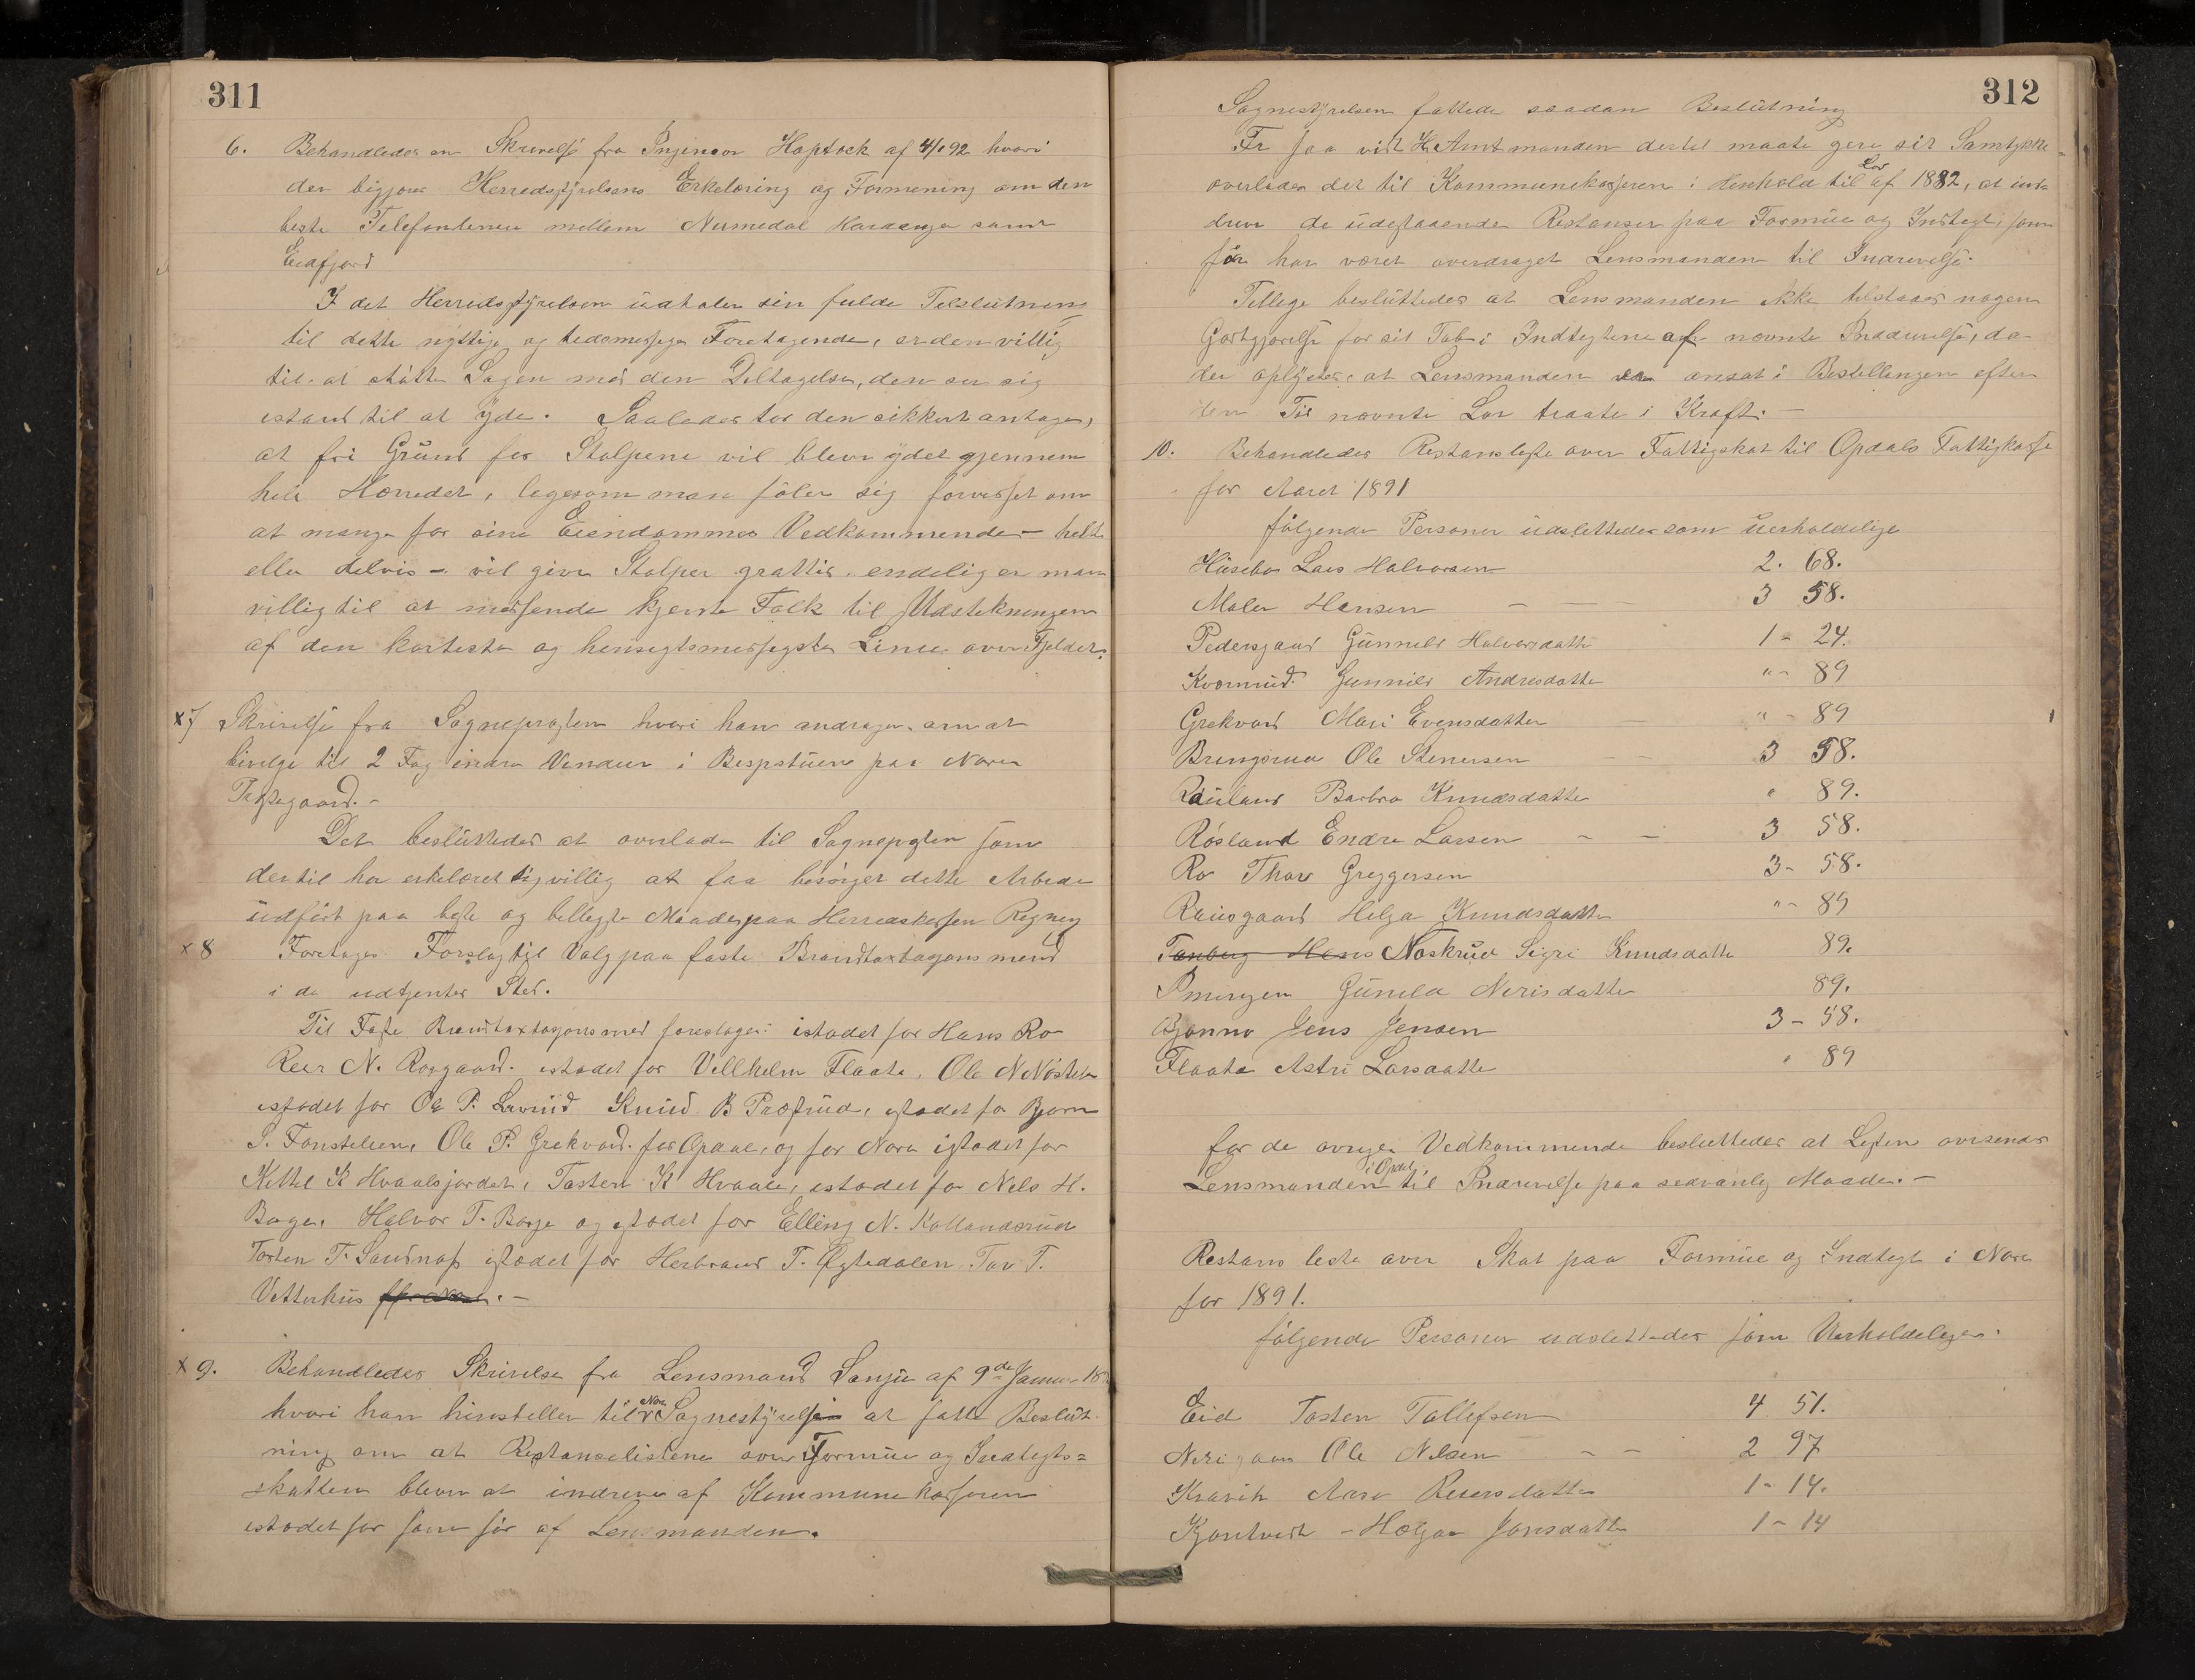 311
6. Behandledes en Skrivelse fra Ingeniør Hoptock af 4/1 92 hvori
der bigjæres Herredsstyrelsens Erkelæring og Formening om den
beste Telefonlinie mellem Numedal Hardanger samt
Eidfjord
I det Herredsstyrelsen udtaler sin fulde Tilslutning
til dette nyttige og tidsmessige Foretagende, er den villig
til at støtte Sagen med den Deltagelse, den ser sig
istand til at yde. Saaledes tør den sikkert antages,
at fri Grund for Stolpene vil bleve ydet gjennem
hele Herredet, ligesom man føler sig forvisset om
at mange for sine Eiendommes Vedkommende – helt
eller delvis – vil give Stolper grattis. endelig er man
villig til at medsende kjente Folk til Udstekningen
af den korteste og hensigtsmessigste Linie over Fjeldet.
x 7 Skrivelse fra Sognepresten hvori han andrager om at
bevilge til 2 Fag indre Vinduer i Bispestuene paa Nore
Prestegaard. –
Det besluttedes at overlade til Sognepresten som
dertil har erkelæret sig villig at faa besørget dette Arbeide
udført paa beste og billigste Maade paa Herredskassen Regning
x 8 Foretages Forslag til Valg paa faste Brandtaxtasjonsmend
i de udtjentes Sted.
Til Faste Brandtaxtasjonsmend foreslages: istadet for Hans Ro
Reer N. Rosgaard. istadet for Vellhelm Flaate, Ole N Nøstebø
istadet for Ole P. Lurud Knud B Præstrud, istadet for Bjørn
S. Fønstelien, Ole P. Grekvod. for Opdal, og for Nore istadet for
Kettel K Hvaalsjordet, Tosten K Hvaale, istadet for Nels H.
Bage, Halvor T. Borge og istadet for Elling N. Kollandsrud
Tosten T. Sandnes istadet for Herbrand T. Øgtedalen Tov T.
Vetterhus . –
x 9. Behandledes Skrivelse fra Lensmand Sønju af 9de Januar 18
hvori han hinstiller til Nore Sognestyrelse at fatte Beslut-
ning om at Restanselistene over Formue og Indtegts=
skatten blever at indreve af Kommunekasseren
istadet for som før af Lensmanden.
312
Sognestyrelsen fattede saadan Beslutning
For saa vidt Hr Amtmanden dertil maate give sit Samtykke
overlades det til Kommunekasseren i Henhold til Lov af 1882, at ind-
drive de udestaaende Restanser paa Formue og Indtegt, som
før har været overdraget Lensmanden til Indrivelse.
Tillige besluttedes at Lensmanden ikke tilstaaes nogen
Godtgjørelse for sit Tab i Indtegtene af nævnte Inddrivelse, da
der oplystes, at Lensmanden var ansat i Bestillingen efter
den Tid nævnte Lov traate i Kraft. –
10. Behandledes Restansliste over Fattigskat til Opdals Fattigkasse
for Aaret 1891
følgende Personer udslettedes som uerholdelige
Husebø Lars Halvorsen 2. 68.
Maler Hansen – – 3 58.
Pedersgaard Gunnild Halvorsdatter 1 - 24.
Kvermud. Gunnild Andresdatter " - 89
Grekvod Mari Evensdatter " - 89
Bringsrud Ole Stenersen – – 3 58.
Rauland Barbro Knudsdatter " 89.
Røsland Endre Larsen – – 3 58.
Ro Thore Greggersen 3 - 58.
Ruusgaard Helga Knudsdatter " - 89
Tonberg Hans Naskrud Sigri Knudsdatter 89.
Imingen Gunild Nerisdatter 89.
Bjønno Jens Jensen 3 - 58.
Flaata Astri Larsdatter " 89
for de øvriges Vedkommende besluttedes at Listen oversendes
Lensmanden i Opdal, til Indrivelse paa sedvanlig Maade. –
Restans liste over Skat paa Formue og Indtegt i Nore
for 1891.
følgende Personer udslettedes som Uerholdelige.
Eid Tosten Tollefsen 4 51.
Nerigaard Ole Nilsen – – 2 97
Kravik Aase Reiersdatter 1 - 14.
Kjontvedt – Helga Jonsdatter 1 - 14